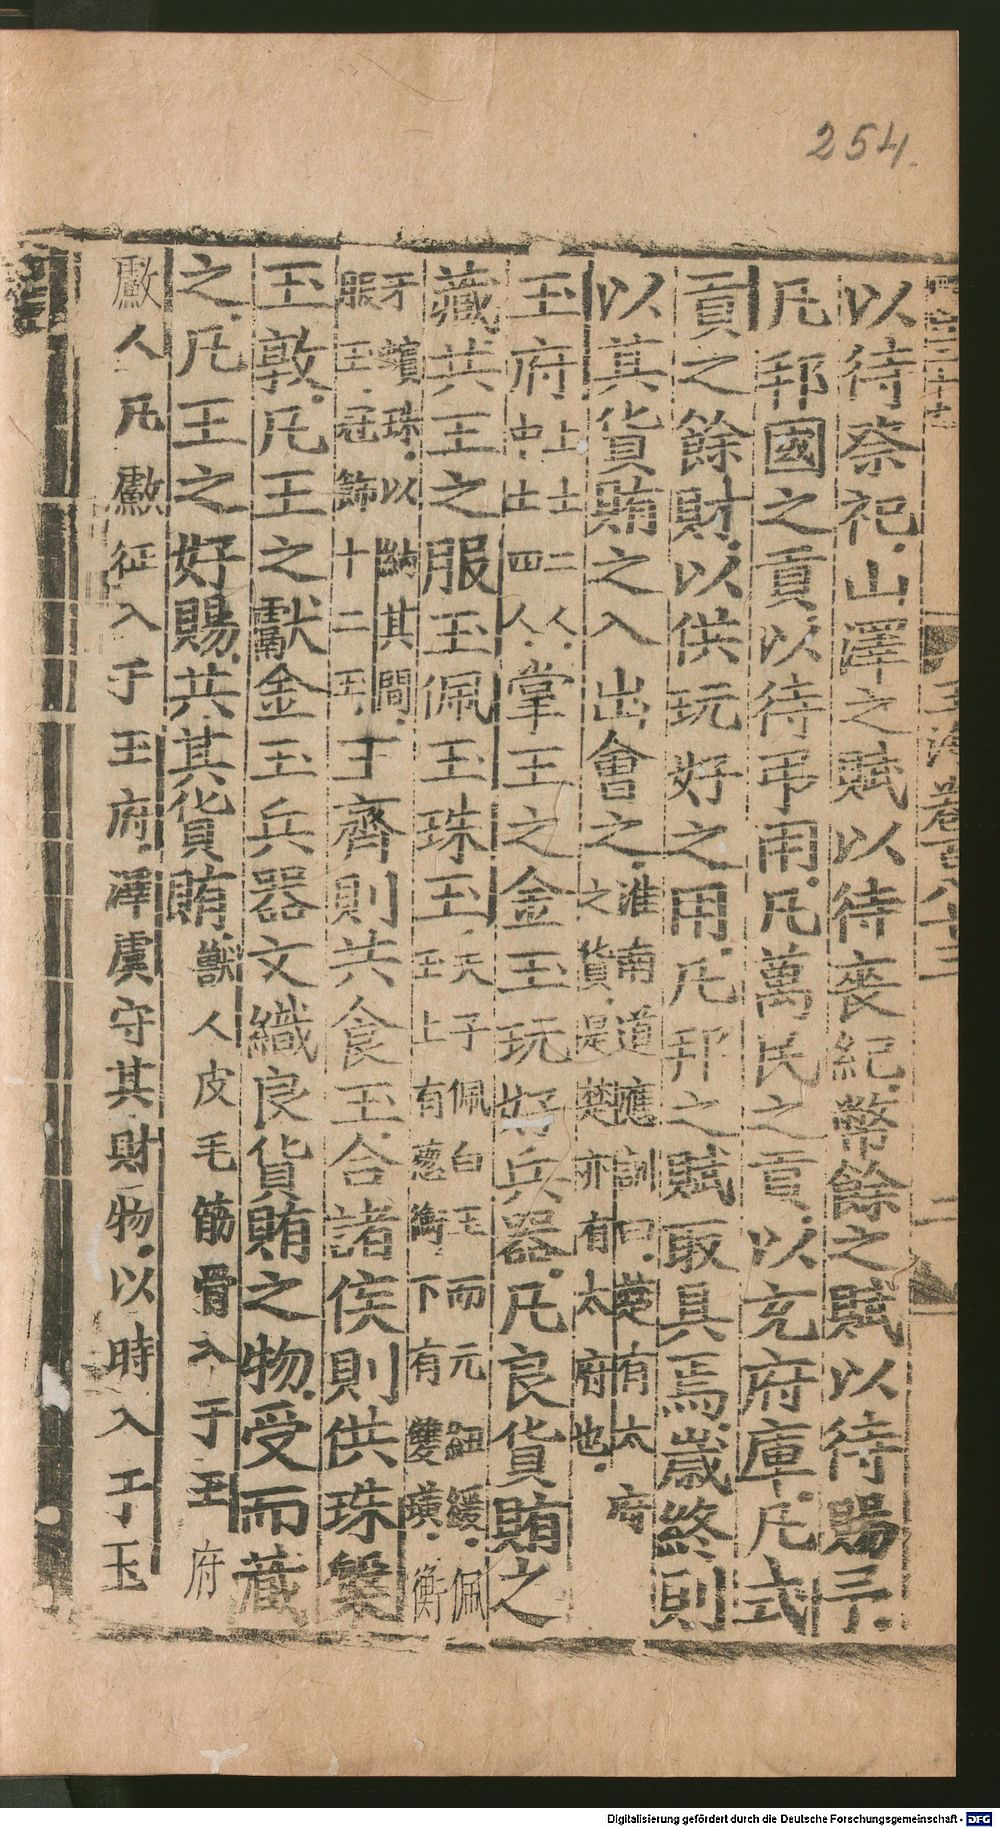 254.
玉海卷百八十三
二
以待祭祀.山澤之賦以待喪紀.幣餘之賦以待賜予.
凡邦國之貢.以待弔用.凡萬民之貢.以充府庫.凡式
貢之餘財.以供玩好之用.凡邦之賦取具焉.歲終則
以其貨賄之入出會之.淮南道應訓曰.楚有太府
之貨.是楚亦有太府也.
玉府上士二人.
中士四人.掌王之金玉玩好兵器.凡良貨賄之
藏共王之服玉佩玉珠玉.天子佩白玉而元組綬.佩
玉上有蔥衡.下有雙璜.衡
牙蠙珠.以納其間.
服玉.冠飾十二玉.王齊則共食玉.合諸侯則供珠槃
玉敦.凡王之獻金玉兵器文織良貨賄之物.受而藏
之.凡王之好賜.共其貨賄.獸人皮毛筋骨入于玉府
䱷人凡䱷征入于玉府.澤虞守其財物.以時入于玉
Digitalisierung gefördert durch die Deutsche Forschungsgemeinschaft - DFG